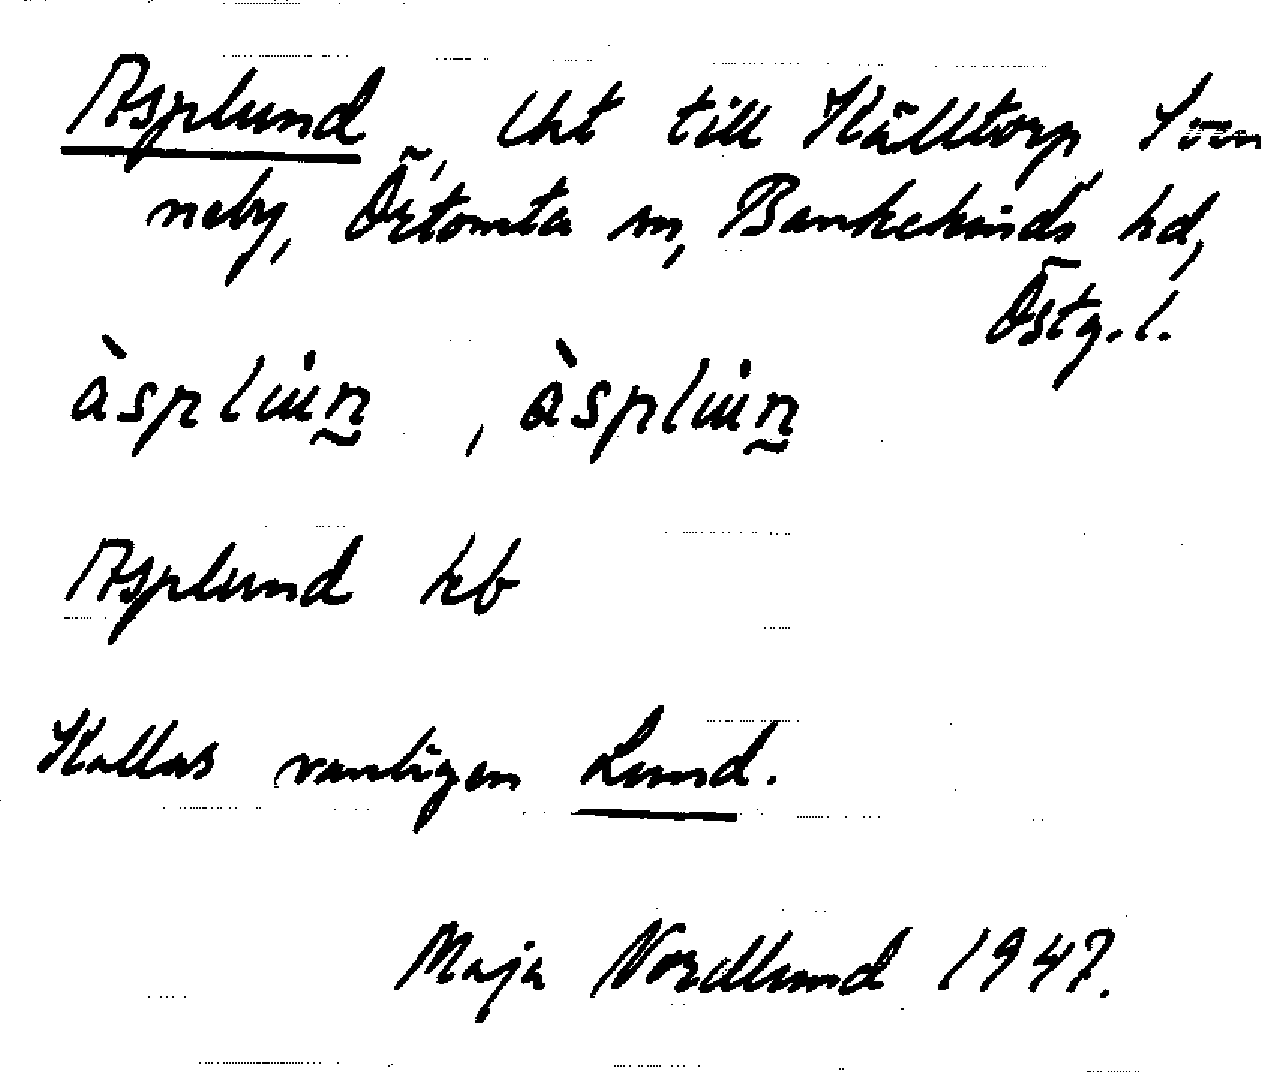 Asplund, lht till Källtorp, Sön
neby, Örtomta sn, Bankekinds hd,
Östg. l.
àsplùn̰, àsplùn̰
Asplund kb
Kallas vanligen Lund.
Maja Nordlund 1947.